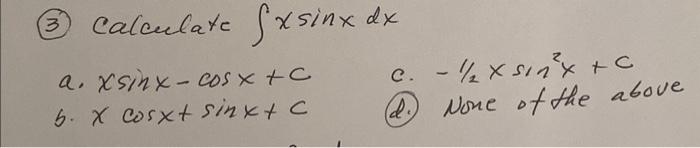 ③ Calculate ∫x sinx dx
a. xsinx - cosx + C
b. x cosx + sinx + C
c. -1/2 x sin²x + C
d. None of the above